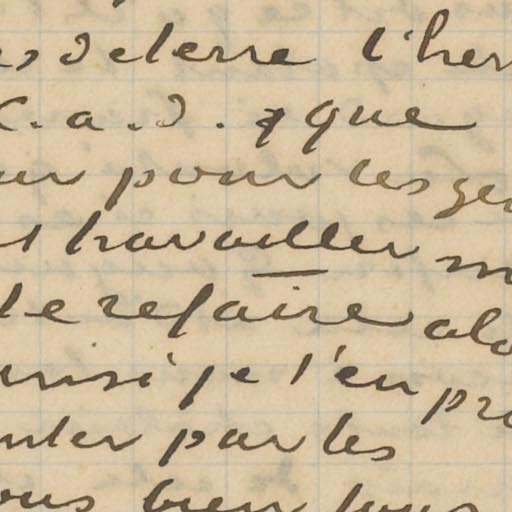 es de terre l'her
c.a.d. que
ur pour les gen
t travailler m
le refaire alo
ainsi je t'en pr
nter par les
ous bien tous